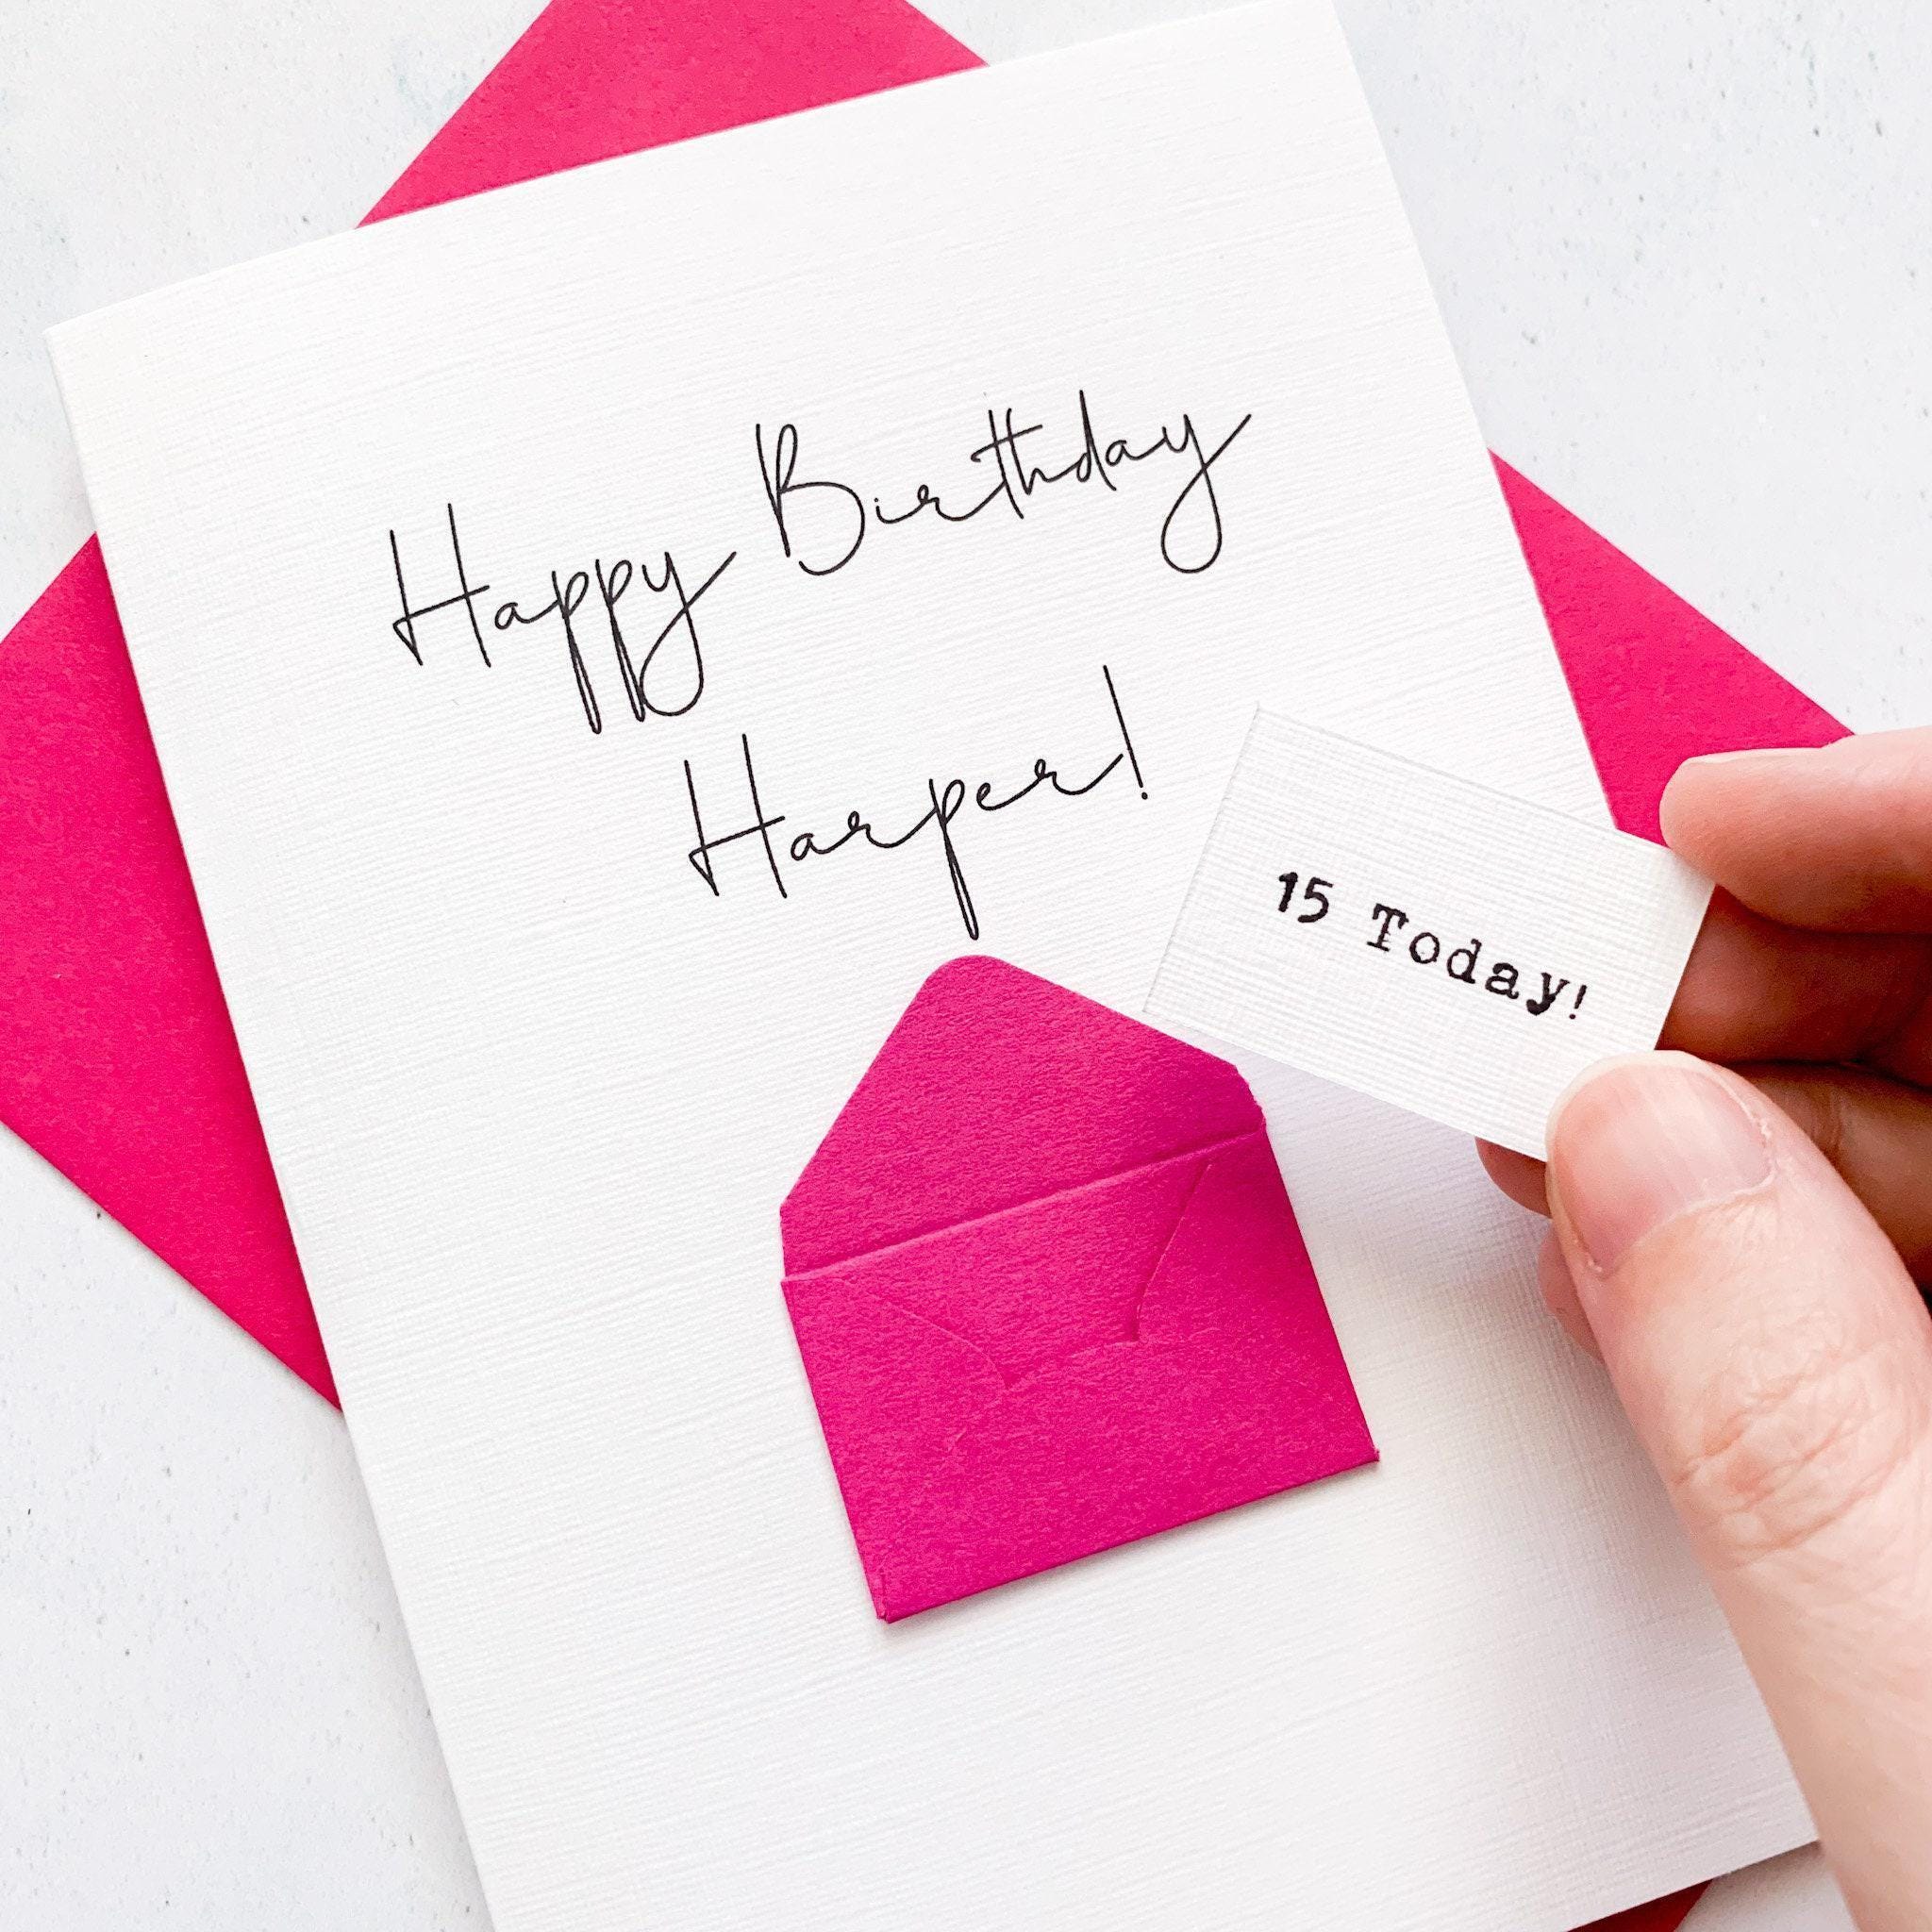 Happy Birthday
Harper!
15 Today!